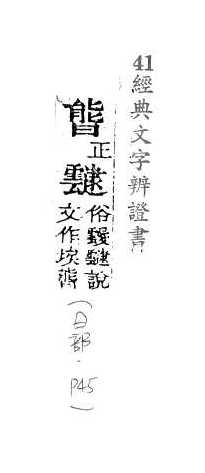 41經典文字辨證書
正
靆
俗靉靆說
文作埃
(日部·P45)